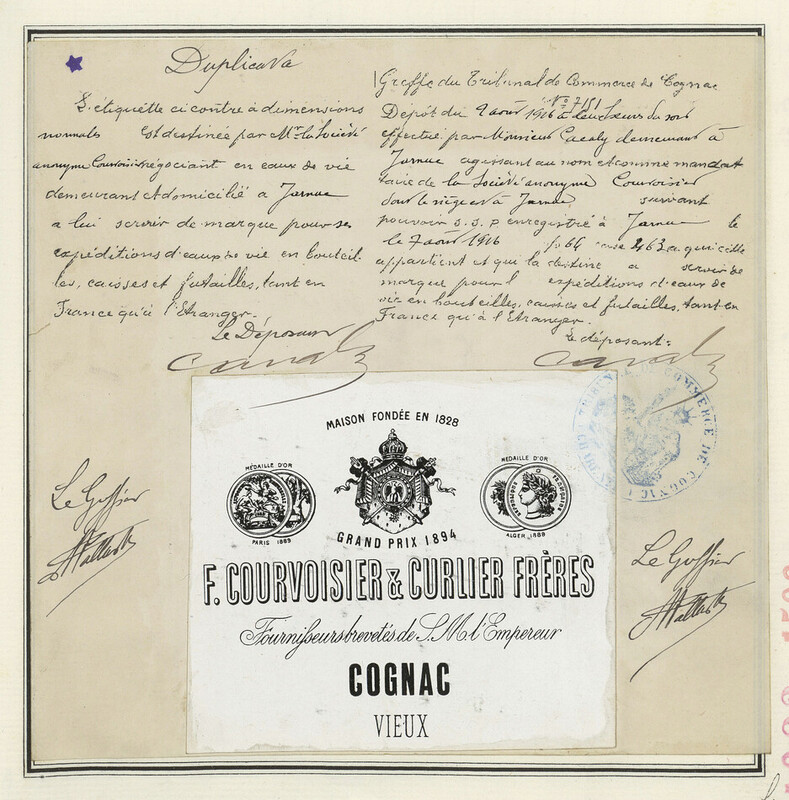 Duplicata
L'étiquette ci contre à dimensions
normales est destinée par Mr la Société
anonyme Courvoisier négociant en eaux de vie
demeurant et domicilié a Jarnac
a lui servir de marque pour ses
expéditions d'eaux de vie en bouteil
les, caisses et futailles, tant en
France qu'à l'Etranger.
Le Déposant
Greffe du Tribunal de Commerce de Cognac
No 7151
Dépôt du 9 août 1916 à deux heures du soir
effectué par Monsieur demeurant à
Jarnac agissant au nom et comme manda
taire de la Société anonyme Courvoisier
dont le siège est à Jarnac suivant
pouvoir S.S.P enregistré à Jarnac le
le 7 août 1916 fo 64 case 463 a qui elle
appartient et qui la destine a servir de
marque pour l expéditions d'eaux de
vie en bouteilles, caisses et futailles, tant en
France qu'à l'Etranger.
Le déposant:
TRIBUNAL DE COMMERCE DE COGNAC
MAISON FONDÉE EN 1828
MÉDAILLE D'OR
PARIS 1889
GRAND PRIX 1894
MÉDAILLE D'OR
ALGER 1888
F. COURVOISIER & CURLIER FRÈRES
Fournisseurs brevetés de S.M. l'Empereur
COGNAC
VIEUX
Le Greffier
Le Greffier